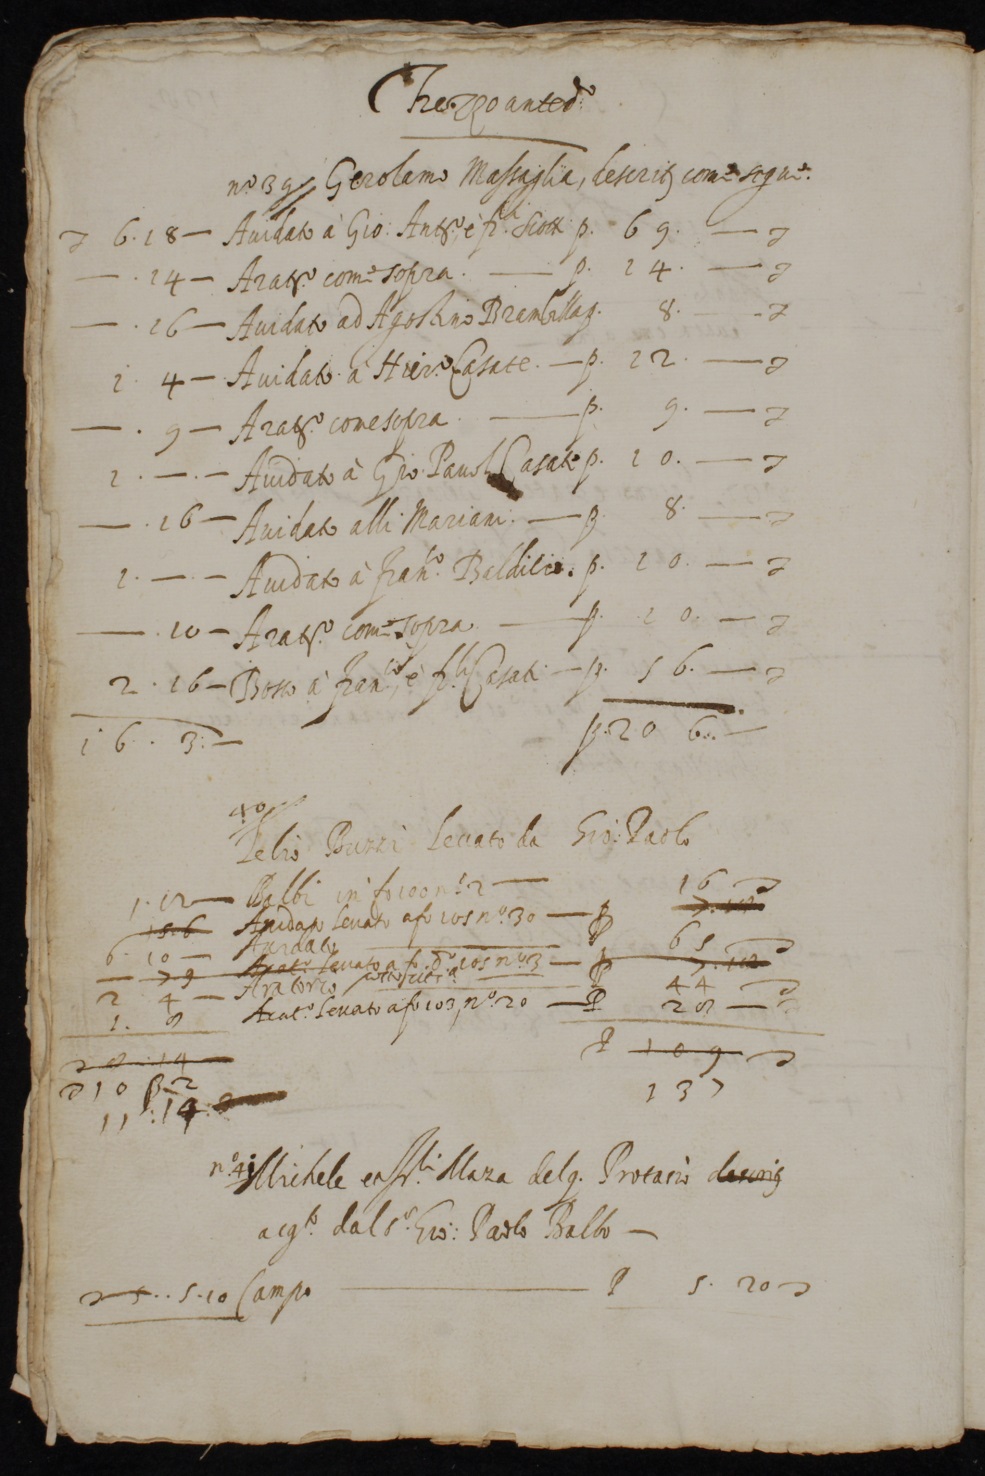 Trezzo anted.o
n.o 39 Gerolamo Massaglia, descrit come segue.
6.18 — Auidato à Gio: Ant.o, è fr.li Scott p. 69. —
— . 14 — Arat.o come sopra. — p. 14. —
— . 16 — Auidato ad Agostino Brambilla p. 8. —
1. 4 — Auidato à Hier.o Casate. — p. 12. —
— . 9 — Arat.o come sopra — p. 9. —
1. — . — Auidato à Gio: Pauol Casate p. 10. —
— . 16 — Auidato alli Mariani. — p. 8. —
1. — . — Auidato à fran.co p. 10. —
— . 10 — Arat.o come sopra — p. 10. —
2 . 16 — Bosco à fran.co, è fr.li Casati — p. 56. —
16 . 3: — p. 206. —
40
Lelio Buzzi leuato da Gio: Paolo
1. 12 — Balbi in fo 100 n.o 2 — 16
Auidato leuato a fo 105 n.o 30 — p
6. 10 — Auidato — p 65
Arat.o leuato a fo d.o 105 n.o 3 — p
2 4 — Aratorio — p 44
1. 8 Arat.o leuato a fo 103, n.o 20 — P 28 —
P 109
10 ß 2 137
11 : 14
n.o 41 Michele e fr.lli Maza del q. Protasio descrit
acq.to dal S.r Gio: Paolo Balbo —
5.10 Campo — P 5. 20